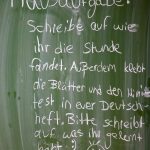 Hausaufgabe:
Schreibe auf wie
ihr die Stunde
fandet. Außerdem klebt
die Blätter und den Mini
test in euer Deutsch-
heft. Bitte schreibt
auf, was ihr gelernt
habt.